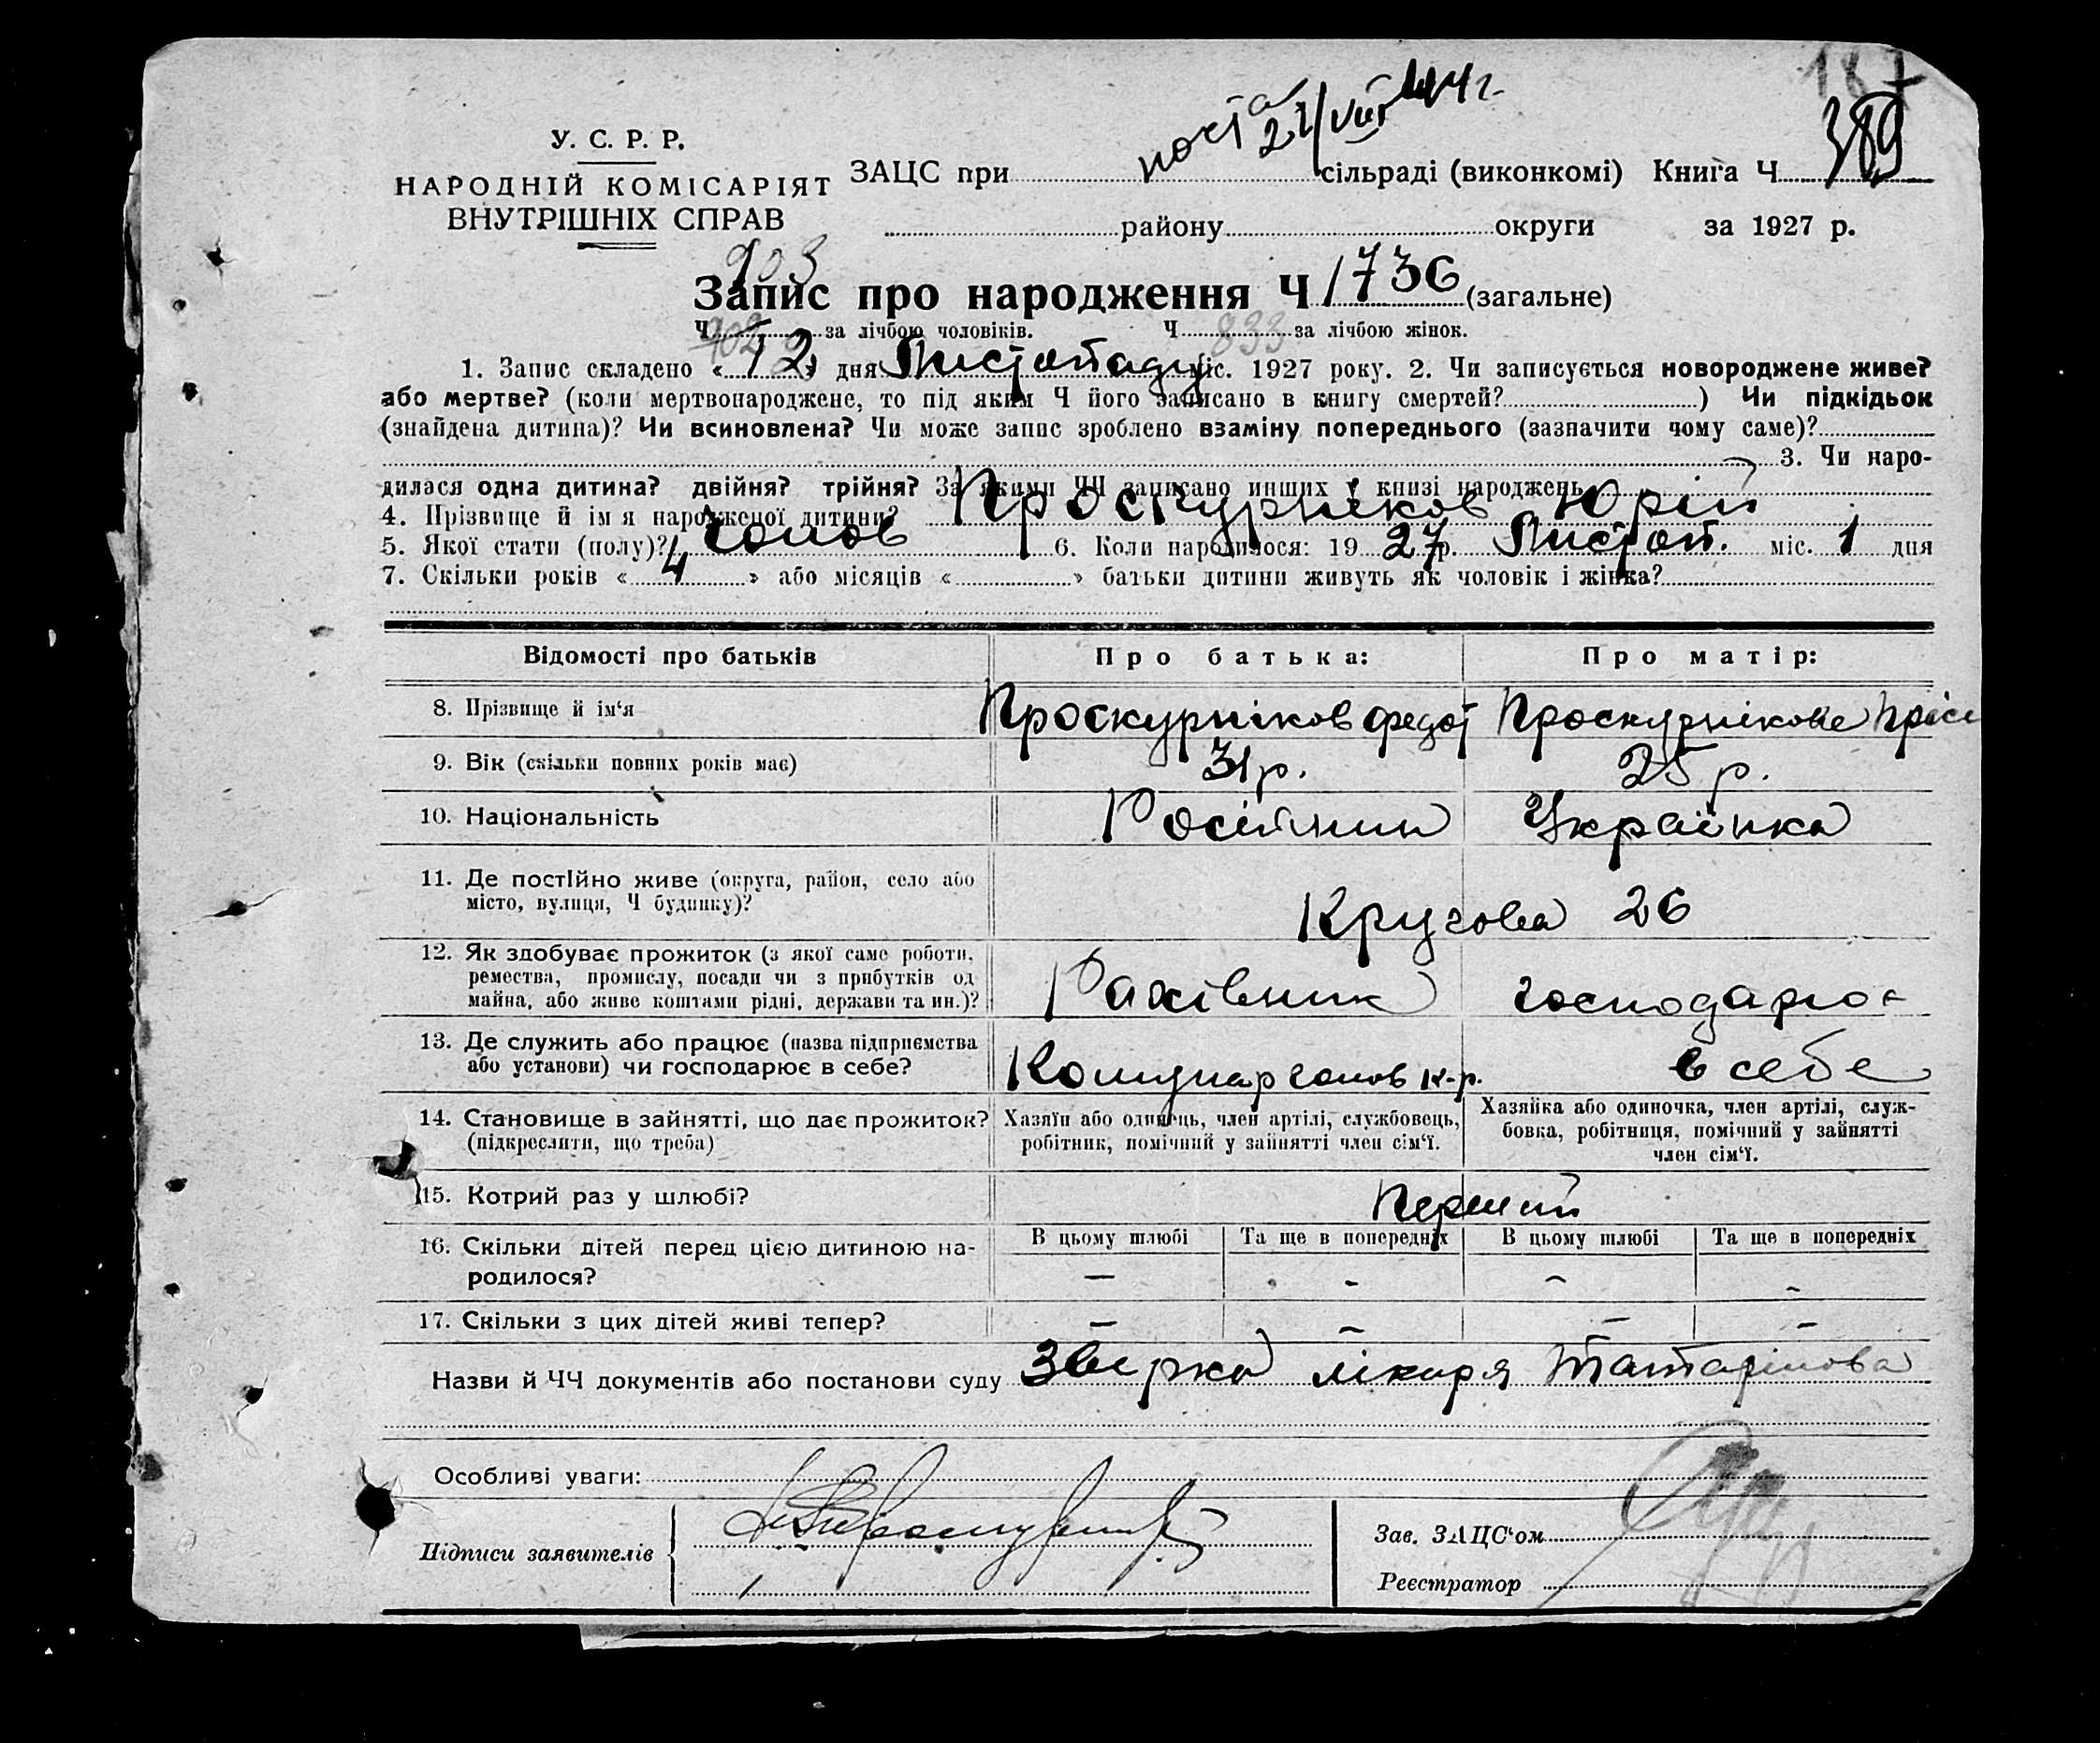 187
389
пошта 27/VIII 44 г.
У. С. Р. Р.
НАРОДНІЙ КОМІСАРІЯТ
ВНУТРІШНІХ СПРАВ
ЗАЦС при сільраді (виконкомі) Книга Ч
району округи за 1927 р.
903
Запис про народження Ч 1736 (загальне)
Ч 902 за лічбою чоловіків. Ч 833 за лічбою жінок.
1. Запис складено « 12 » дня Листопаду міс. 1927 року. 2. Чи записується новороджене живе?
або мертве? (коли мертвонароджене, то під яким Ч його записано в книгу смертей? ) Чи підкідьок
(знайдена дитина)? Чи всиновлена? Чи може запис зроблено взаміну попереднього (зазначити чому саме)?
3. Чи наро-
дилася одна дитина? двійня? трійня? За якими ЧЧ записано инших у книзі народжень
4. Прізвище й ім я народженої дитини? Проскурніков Юрій
5. Якої стати (полу)? чолов 6. Коли народилося: 19 27 р. Листоп. міс. 1 дня
7. Скільки років « 4 » або місяців « » батьки дитини живуть як чоловік і жінка?
Відомості про батьків Про батька: Про матір:
8. Прізвище й ім‘я Проскурніков Федот Проскурнікове
9. Вік (скільки повних років має) 31 р. 25 р.
10. Національність Росіянин Українка
11. Де постІйно живе (округа, район, село або
місто, вулиця, Ч будинку)? Кругова 26
12. Як здобуває прожиток (з якої саме роботи,
ремества, промислу, посади чи з прибутків од
майна, або живе коштами рідні, держави та ин.)? Рахівник господарює
13. Де служить або працює (назва підприємства
або установи) чи господарює в себе? Комунар голов к-р. в себе
14. Становище в зайнятті, що дає прожиток?
(підкреслити, що треба)
Хазяїн або одинець, член артілі, службовець,
робітник, помічний у зайнятті член сім‘ї.
Хазяйка або одиночка, член артілі, служ-
бовка, робітниця, помічний у зайнятті
член сім‘ї.
15. Котрий раз у шлюбі? Перший
16. Скільки дітей перед цією дитиною на-
родилося?
В цьому шлюбі Та ще в попередніх В цьому шлюбі Та ще в попередніх
— - - -
17. Скільки з цих дітей живі тепер? — - - -
Назви й ЧЧ документів або постанови суду лікаря Татарінова
Особливі уваги:
Підписи заявителів
Зав. ЗАЦС‘ом
Реєстратор